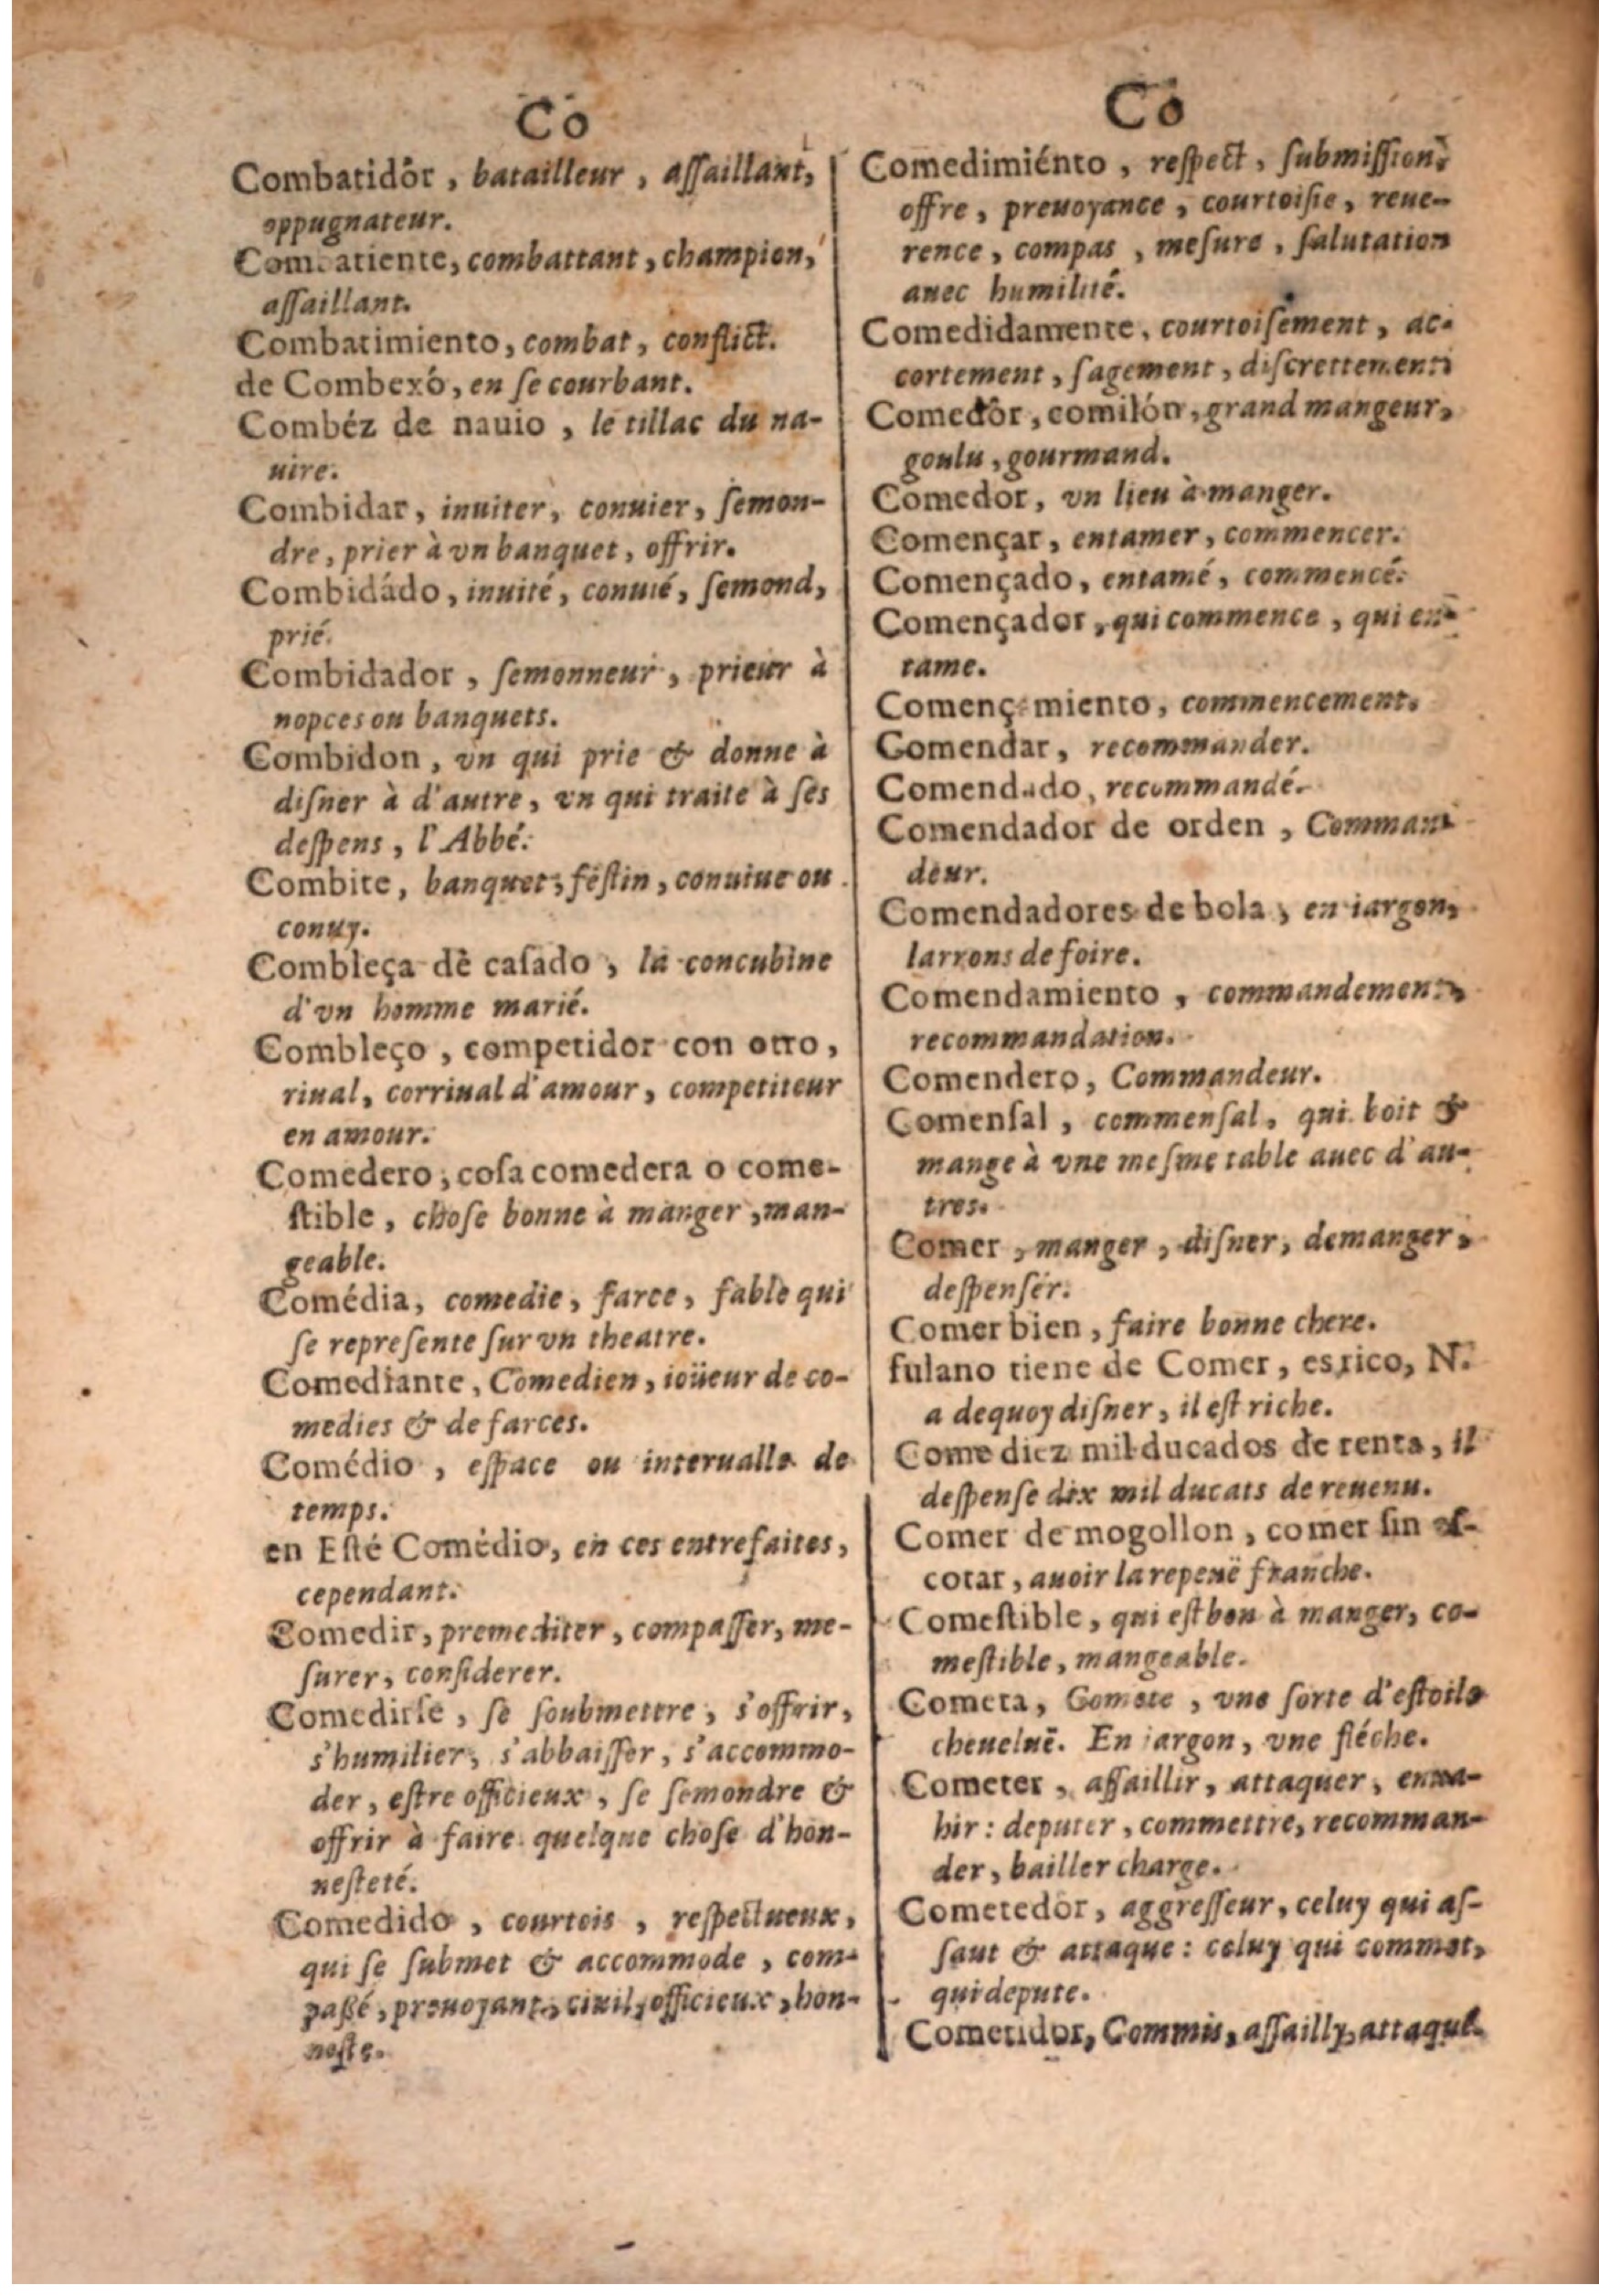 Co
Combatidôr, batailleur, aſſaillant,
oppugnateur.
Combatiente, combattant, champion,
aſſaillant.
Combatimiento, combat, conflict.
de Combexó, en ſe courbant.
Combéz de nauio, le tillac du na-
uire.
Combidar, inuiter, conuier, ſemon-
dre, prier à vn banquet, offrir.
Combidádo, inuité, conuié, ſemond,
prié.
Combidador, ſemonneur, prieur à
nopces ou banquets.
Combidon, vn qui prie & donne à
diſner à d'autre, vn qui traite à ſes
deſpens, l'Abbé.
Combite, banquet, feſtin, conuiue ou
conuy.
Combleça de caſado, la concubine
d'vn homme marié.
Combleço, competidor con otro,
riual, corriual d'amour, competiteur
en amour.
Comedero, coſa comedera o come-
ſtible, choſe bonne à manger, man-
geable.
Comédia, comedie, farce, fable qui
ſe repreſente ſur vn theatre.
Comediante, Comedien, ioüeur de co-
medies & de farces.
Comédio, eſpace ou interualle de
temps.
en Eſté Comédio, en ces entrefaites,
cependant.
Comedir, premediter, compaſſer, me-
ſurer, conſiderer.
Comedirſe, ſe ſoubmettre, s'offrir,
s'humilier, s'abbaiſſer, s'accommo-
der, eſtre officieux, ſe ſemondre &
offrir à faire quelque choſe d'hon-
neſteté.
Comedido, courtois, reſpectueux,
qui ſe ſubmet & accommode, com-
paßé, preuoyant, ciuil, officieux, hon-
neſte.
Co
Comedimiénto, reſpect, ſubmiſſion,
offre, preuoyance, courtoiſie, reue-
rence, compas, meſure, ſalutation
auec humilité.
Comedidamente, courtoiſement, ac-
cortement, ſagement, diſcrettement.
Comedôr, comilón, grand mangeur,
goulu, gourmand.
Comedor, vn lieu à manger.
Començar, entamer, commencer.
Començado, entamé, commencé.
Començador, qui commence, qui en-
tame.
Començamiento, commencement.
Comendar, recommander.
Comendado, recommandé.
Comendador de orden, Comman-
deur.
Comendadores de bola, en iargon,
larrons de foire.
Comendamiento, commandement,
recommandation.
Comendero, Commandeur.
Comenſal, commenſal, qui boit &
mange à vne meſme table auec d'au-
tres.
Comer, manger, diſner, demanger,
deſpenſer.
Comer bien, faire bonne chere.
fulano tiene de Comer, es rico, N.
a dequoy diſner, il eſt riche.
Come diez mil ducados de renta, il
deſpenſe dix mil ducats de reuenu.
Comer de mogollon, comer ſin eſ-
cotar, auoir la repeuë franche.
Comeſtible, qui eſt bon à manger, co-
meſtible, mangeable.
Cometa, Comete, vne ſorte d'eſtoile
cheueluë. En iargon, vne fléche.
Cometer, aſſaillir, attaquer, enua-
hir: deputer, commettre, recomman-
der, bailler charge.
Cometedor, aggreſſeur, celuy qui aſ-
ſaut & attaque: celuy qui commet,
qui depute.
Cometidor, Commis, aſſailly, attaqué.